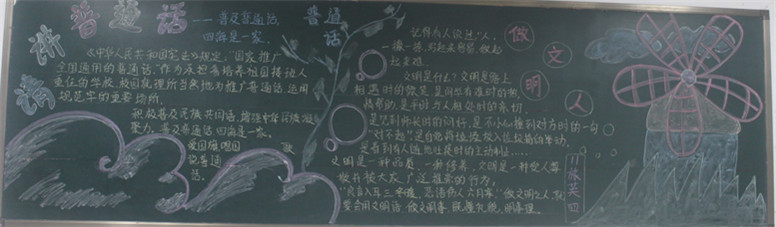 讲普通话
——普及普通话，
四海是一家。
《中华人民共和国宪法》规定，"国家推广
全国通用的普通话。作为承担着培养祖国接班人
重任的学校，校园就理所当然地为推广普通话、运用
规范字的重要场所。
积极普及民族共同语，增强中华民族凝
聚力。普及普通话，四海是一家。
爱国旗唱国
说普通
话。
普通
话
做文明人
记得有人说过："人
一撇一捺，写起来容易，做起
起来难。
文明是什么？文明是路上
相遇时的微笑，是同学有难时的
帮助，是平时与人相处时的亲切，
是见到师长时的问好，是不小心撞到对方时的一句
"对不起"，是自觉将垃圾放入垃圾箱的举动，
是看到有人随地吐痰时的主动制止……
文明是一种品质，一种修养，文明是一种受人尊
敬并被大家广泛推崇的行为。
"良言入耳三冬暖，恶语伤人六月寒"做文明之人，就
要会用文明语，做文明事，既懂礼貌，明事理。